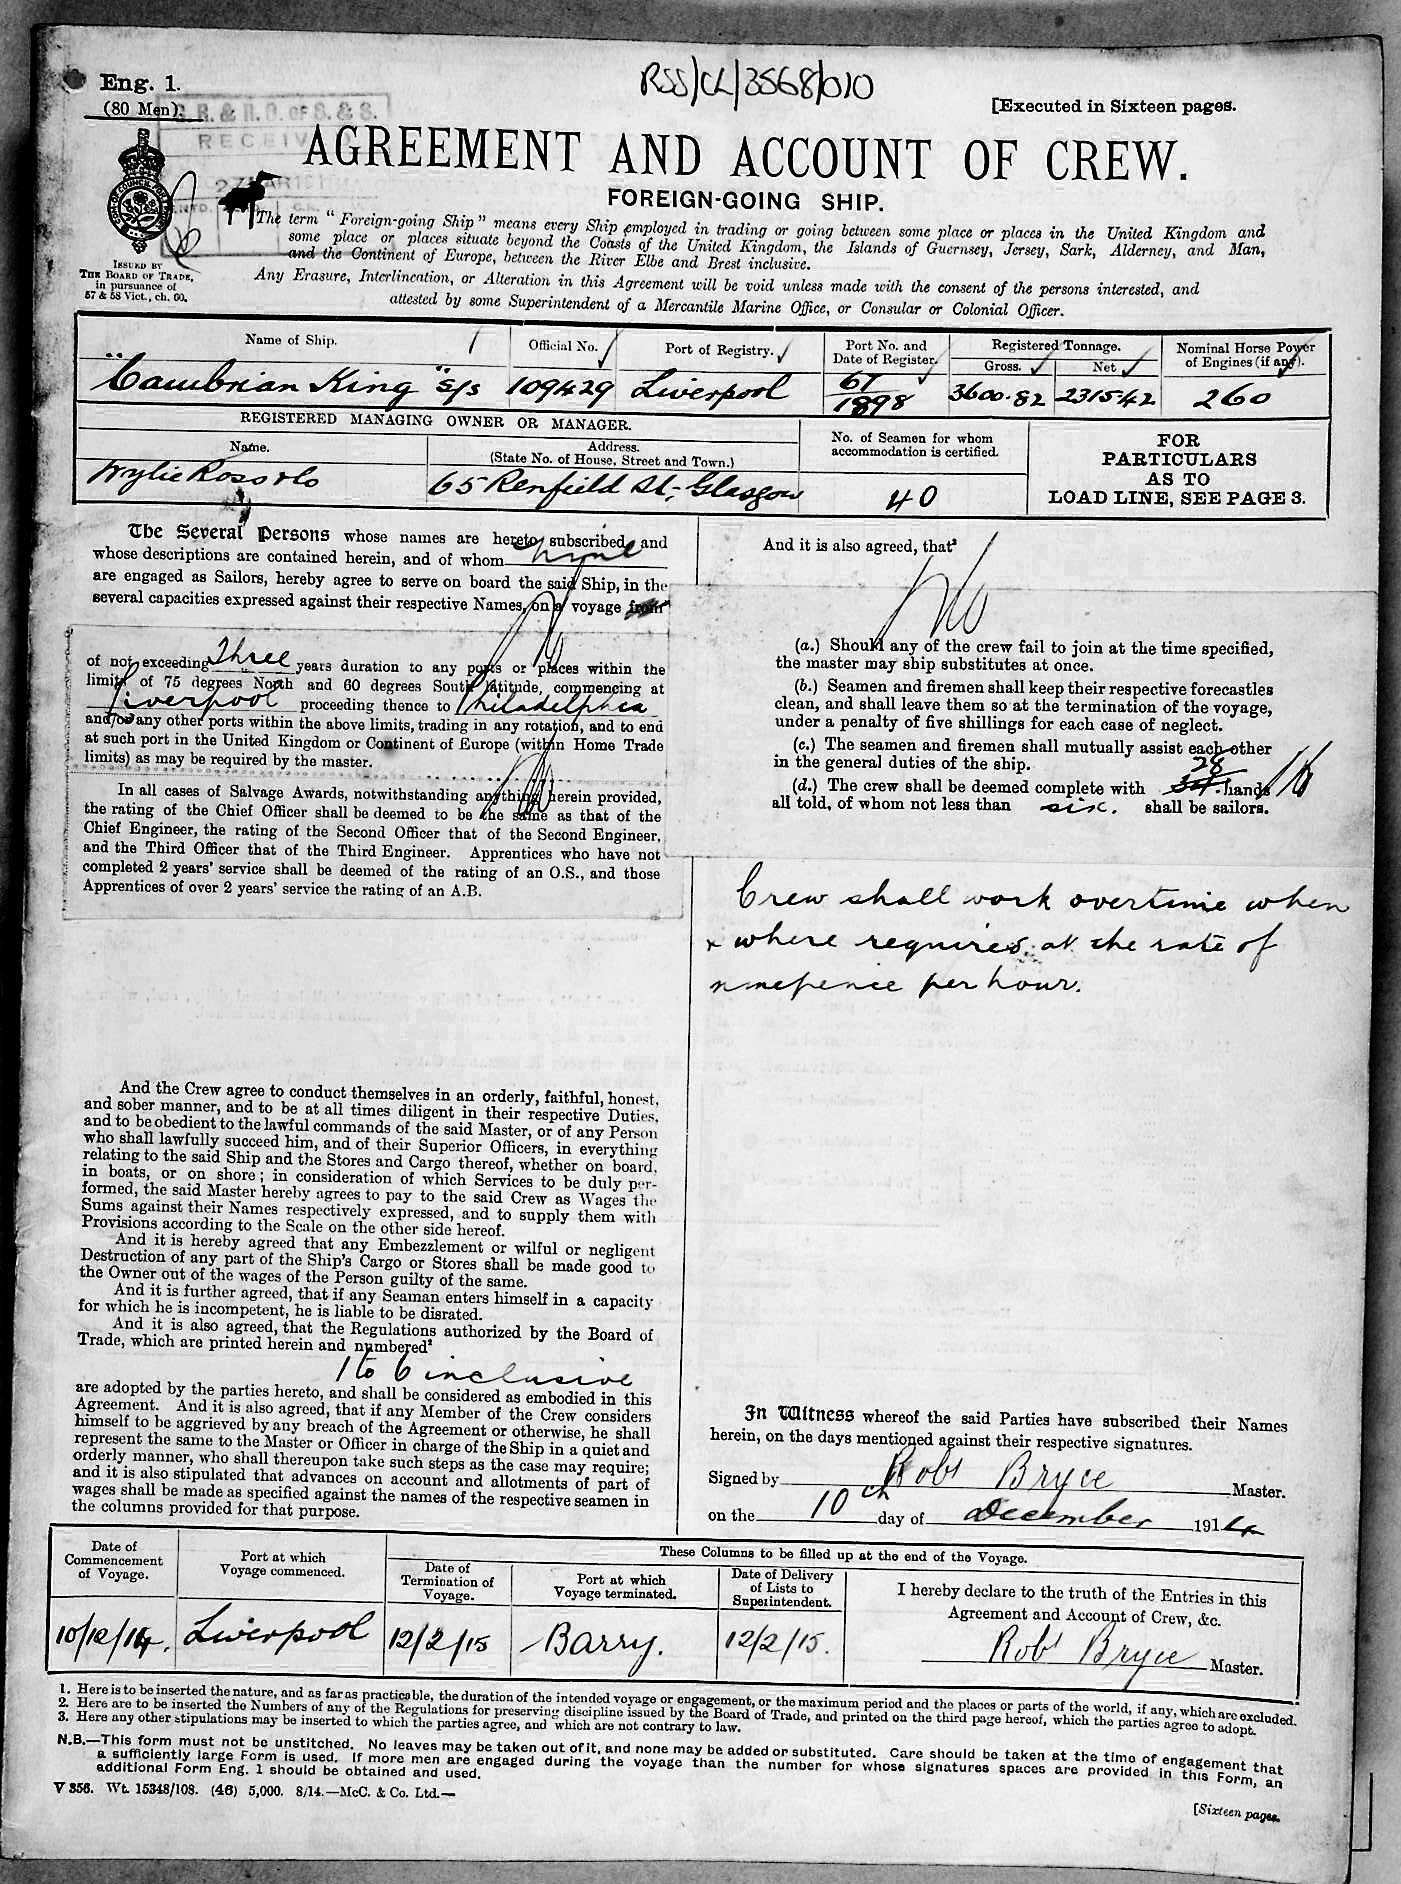 RSS/CL/3568/010
Eng. 1.
(80 Men).
[Executed in Sixteen pages.
C. R. & R. O. OF S. & S.
RECEIV
AGREEMENT AND ACCOUNT OF CREW.
FOREIGN-GOING SHIP.
ISSUED BY
THE BOARD OF TRADE,
in pursuance of
57 & 58 Vict., ch. 60.
The term “Foreign-going Ship” means every Ship employed in trading or going between some place or places in the United Kingdom and
some place or places situate beyond the Coasts of the United Kingdom, the Islands of Guernsey, Jersey, Sark, Alderney, and Man,
and the Continent of Europe, between the River Elbe and Brest inclusive.
Any Erasure, Interlineation, or Alteration in this Agreement will be void unless made with the consent of the persons interested, and
attested by some Superintendent of a Mercantile Marine Office, or Consular or Colonial Officer.
Name of Ship.
Official No.
Port of Registry.
Port No. and
Date of Register.
Registered Tonnage.
Gross.
Net
Nominal Horse Power
of Engines (if any).
"Cambrian King" s/s
109429
Liverpool
67
1898
3600.82
2315.42
260
REGISTERED MANAGING OWNER OR MANAGER.
Name.
Address.
(State No. of House, Street and Town.)
No. of Seamen for whom
accommodation is certified.
FOR
PARTICULARS
AS TO
LOAD LINE, SEE PAGE 3.
Wylie Ross & Co
65 Renfield St, Glasgow
40
The Several Persons whose names are hereto subscribed, and
whose descriptions are contained herein, and of whom nine
are engaged as Sailors, hereby agree to serve on board the said Ship, in the
several capacities expressed against their respective Names, on a¹ voyage from
of not exceeding Three years duration to any ports or places within the
limits of 75 degrees North and 60 degrees South latitude, commencing at
Liverpool proceeding thence to Philadelphia
and/or any other ports within the above limits, trading in any rotation, and to end
at such port in the United Kingdom or Continent of Europe (within Home Trade
limits) as may be required by the master.
In all cases of Salvage Awards, notwithstanding anything herein provided,
the rating of the Chief Officer shall be deemed to be the same as that of the
Chief Engineer, the rating of the Second Officer that of the Second Engineer,
and the Third Officer that of the Third Engineer. Apprentices who have not
completed 2 years' service shall be deemed of the rating of an O.S., and those
Apprentices of over 2 years' service the rating of an A.B.
And the Crew agree to conduct themselves in an orderly, faithful, honest,
and sober manner, and to be at all times diligent in their respective Duties,
and to be obedient to the lawful commands of the said Master, or of any Person
who shall lawfully succeed him, and of their Superior Officers, in everything
relating to the said Ship and the Stores and Cargo thereof, whether on board,
in boats, or on shore; in consideration of which Services to be duly per-
formed, the said Master hereby agrees to pay to the said Crew as Wages the
Sums against their Names respectively expressed, and to supply them with
Provisions according to the Scale on the other side hereof.
And it is hereby agreed that any Embezzlement or wilful or negligent
Destruction of any part of the Ship's Cargo or Stores shall be made good to
the Owner out of the wages of the Person guilty of the same.
And it is further agreed, that if any Seaman enters himself in a capacity
for which he is incompetent, he is liable to be disrated.
And it is also agreed, that the Regulations authorized by the Board of
Trade, which are printed herein and numbered²
1 to 6 inclusive
are adopted by the parties hereto, and shall be considered as embodied in this
Agreement. And it is also agreed, that if any Member of the Crew considers
himself to be aggrieved by any breach of the Agreement or otherwise, he shall
represent the same to the Master or Officer in charge of the Ship in a quiet and
orderly manner, who shall thereupon take such steps as the case may require;
and it is also stipulated that advances on account and allotments of part of
wages shall be made as specified against the names of the respective seamen in
the columns provided for that purpose.
And it is also agreed, that³
(a.) Should any of the crew fail to join at the time specified,
the master may ship substitutes at once.
(b.) Seamen and firemen shall keep their respective forecastles
clean, and shall leave them so at the termination of the voyage,
under a penalty of five shillings for each case of neglect.
(c.) The seamen and firemen shall mutually assist each other
in the general duties of the ship.
28
(d.) The crew shall be deemed complete with hands
all told, of whom not less than six. shall be sailors.
Crew shall work overtime when
& where required at the rate of
ninepence per hour.
In Witness whereof the said Parties have subscribed their Names
herein, on the days mentioned against their respective signatures.
Signed by Robt Bryce Master.
on the 10th day of December 1914
Date of
Commencement
of Voyage.
Port at which
Voyage commenced.
These Columns to be filled up at the end of the Voyage.
Date of
Termination of
Voyage.
Port at which
Voyage terminated.
Date of Delivery
of Lists to
Superintendent.
I hereby declare to the truth of the Entries in this
Agreement and Account of Crew, &c.
10/12/14.
Liverpool
12/2/15
Barry.
12/2/15.
Robt Bryce Master.
1. Here is to be inserted the nature, and as far as practicable, the duration of the intended voyage or engagement, or the maximum period and the places or parts of the world, if any, which are excluded.
2. Here are to be inserted the Numbers of any of the Regulations for preserving discipline issued by the Board of Trade, and printed on the third page hereof, which the parties agree to adopt.
3. Here any other stipulations may be inserted to which the parties agree, and which are not contrary to law.
N.B.—This form must not be unstitched. No leaves may be taken out of it, and none may be added or substituted. Care should be taken at the time of engagement that
a sufficiently large Form is used. If more men are engaged during the voyage than the number for whose signatures spaces are provided in this Form, an
additional Form Eng. 1 should be obtained and used.
V 356. Wt. 15348/108. (46) 5,000. 8/14.—McC. & Co. Ltd.—
[Sixteen pages.